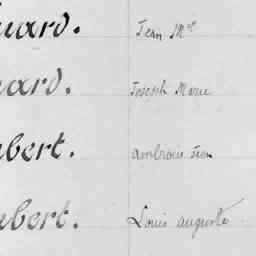 uard. Jean M^el
uard. Joseph Marie
bert. ambroise Jean
bert. Louis auguste